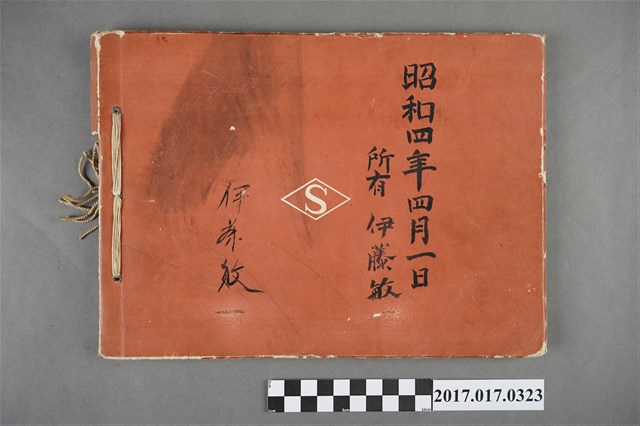 昭和四年四月一日
所有 伊藤敏一
伊藤敏一
S
2017.017.0323